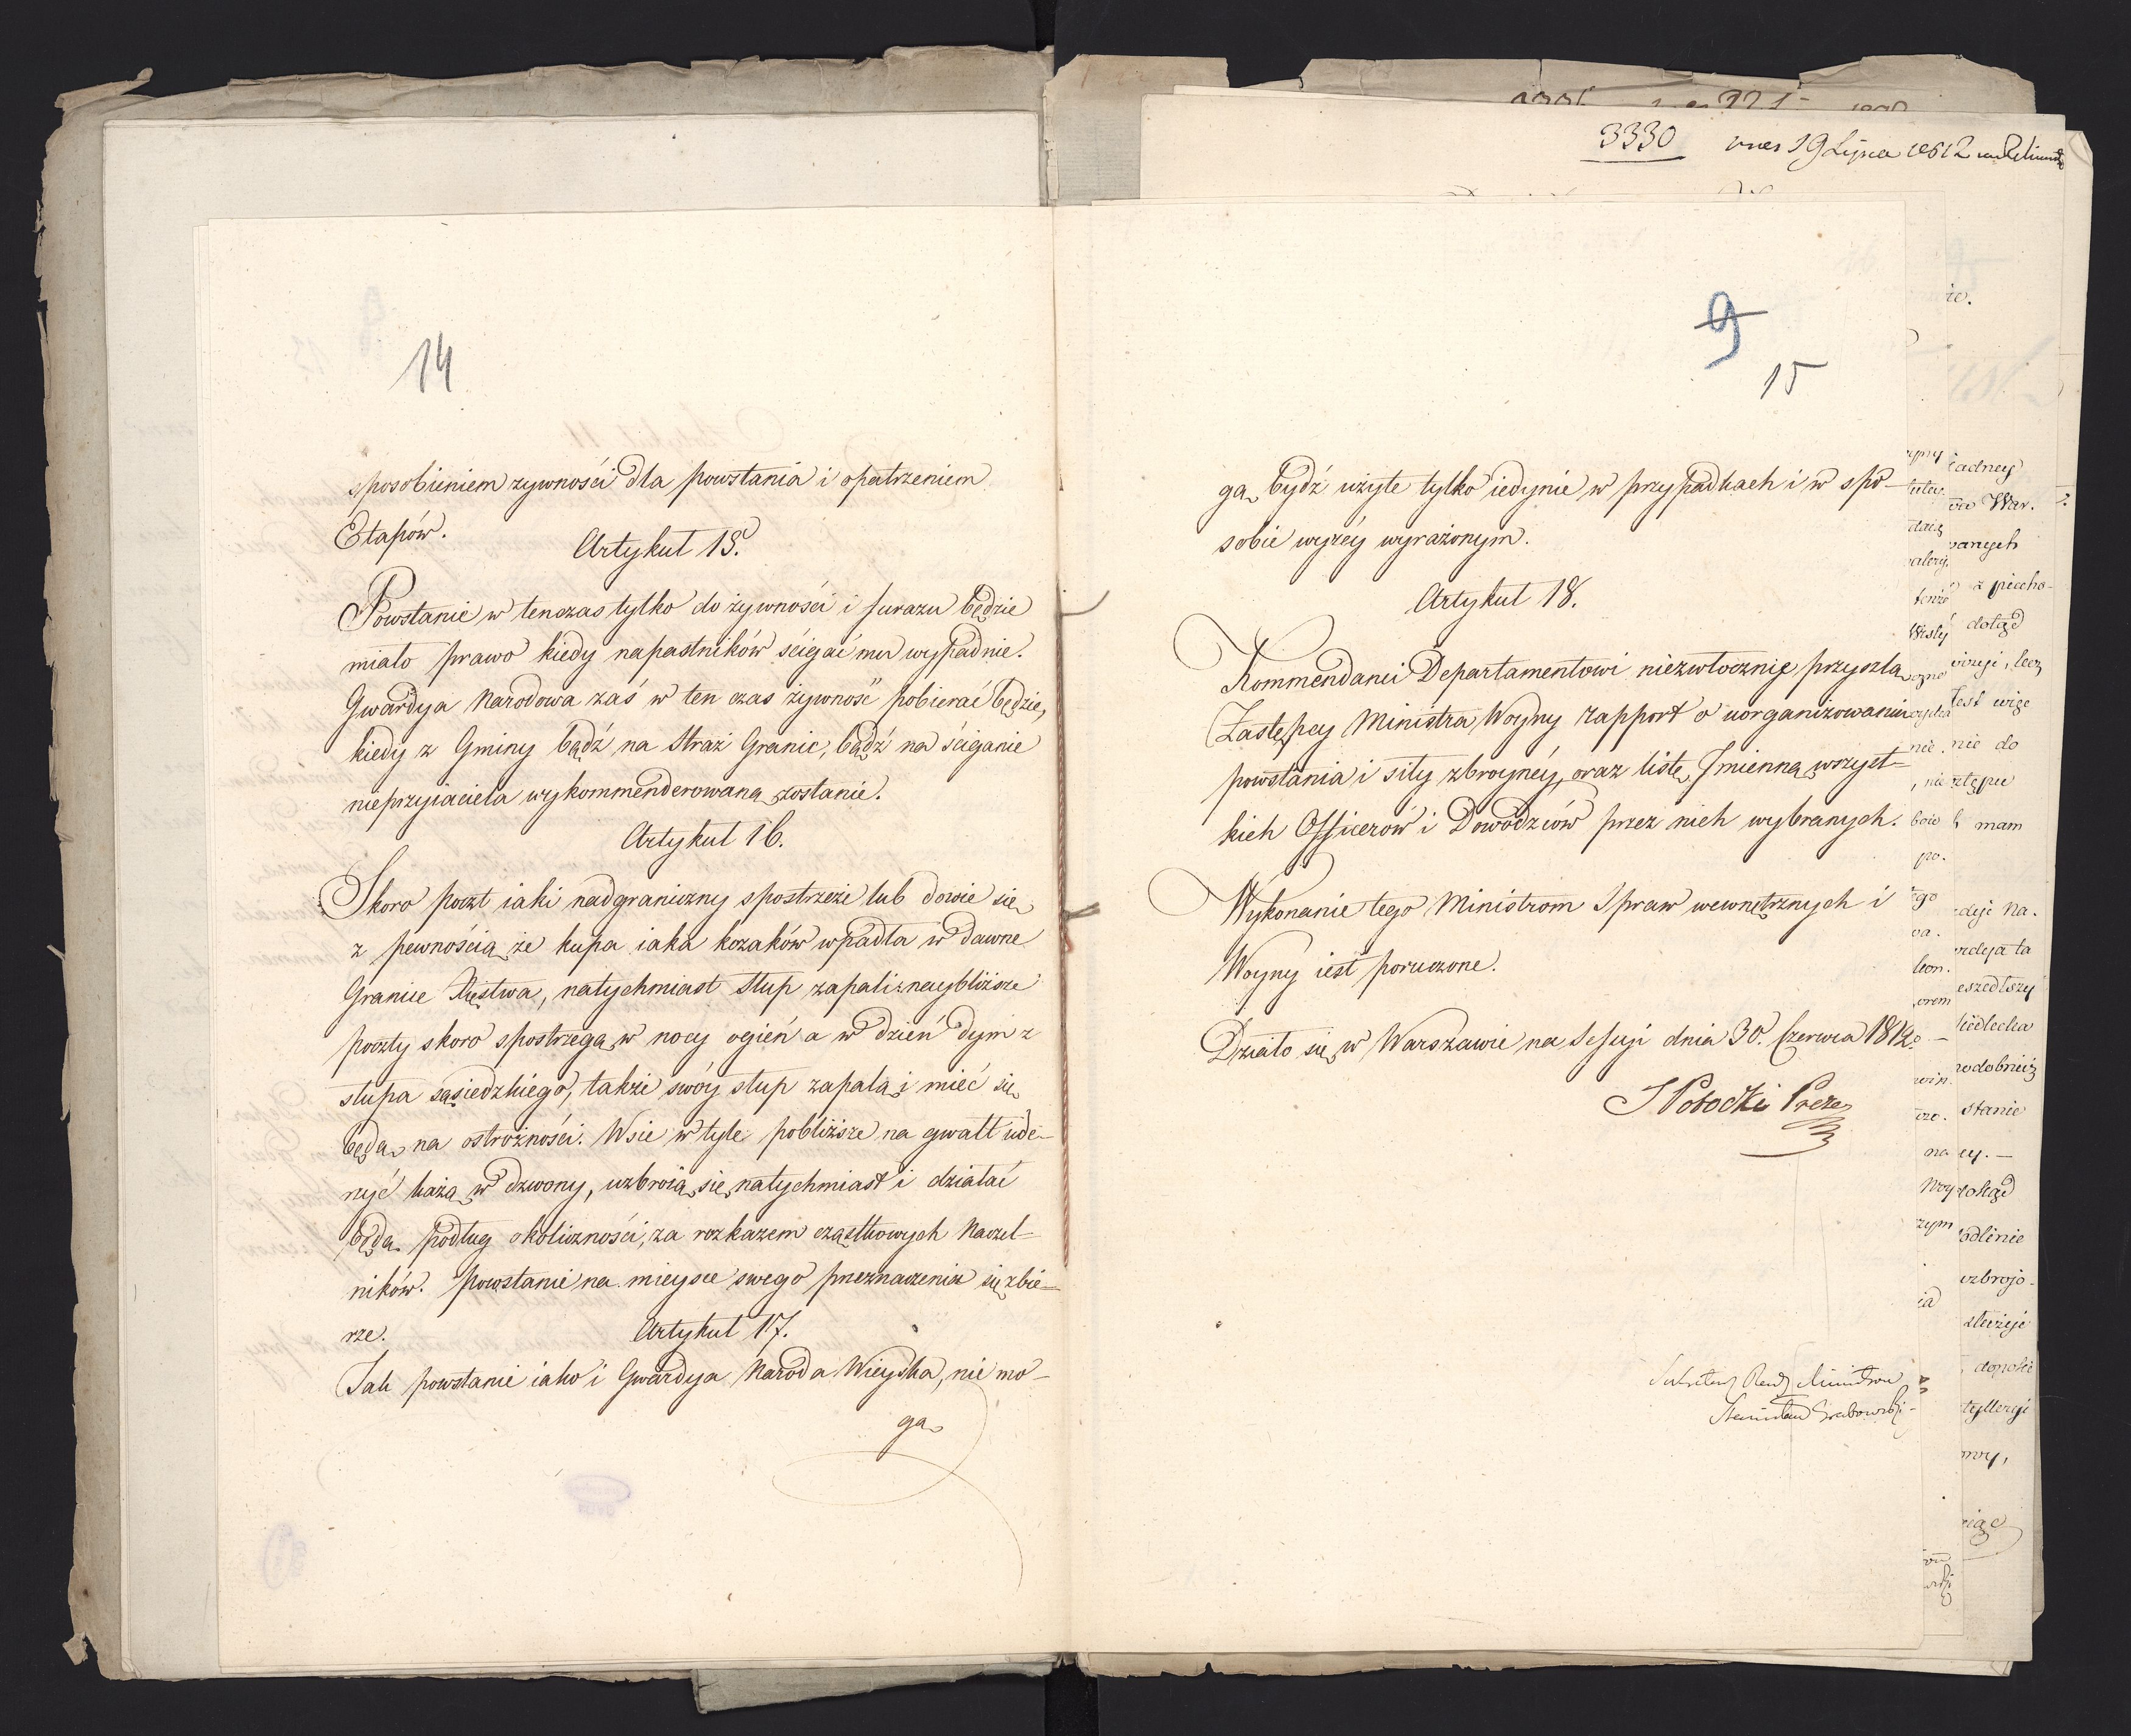 14
sposobieniem zywności dla powstania i opatrzeniem
Etapów.
Artykuł 15.
Powstanie w tenczas tylko do żywności i furazu będzie
miało prawo kiedy napastników ścigać mu wypadnie.
Gwardya Narodowa zaś w ten czas żywność pobierać będzie,
kiedy z Gminy bądź na Straż Granic, bądź na ściganie
nieprzyiaciela wykommenderowaną zostanie.
Artykuł 16.
Skoro poczt iaki nadgraniczny spostrzeże lub dowie się
z pewnością że kupa iaka kozaków wpadła w dawne
Granice Xięstwa, natychmiast Słup zapali: naybliższe
poczty skoro spostrzegą w nocy ogień a w dzień dym z
słupa sąsiedzkiego, także swóy słup zapalą i mieć się
będą na ostrożności. Wsie w tyle pobliższe na gwałt ude-
rzyć każą w dzwony, uzbroią się natychmiast i działać
będą podług okoliczności, za rozkazem cząstkowych Naczel-
ników. powstanie na mieysce swego przeznaczenia się zbie-
rze.
Artykuł 17.
Tak powstanie iako i Gwardya Naroda Wieyska, nie mo-
gą
3330
9
15
gą bydź użyte tylko iedynie w przypadkach i w spo-
sobie wyżéy wyrażonym.
Artykuł 18.
Kommendanci Departamentowi niezwłocznie przyszlą
Zastępcy Ministra Woyny rapport o uorganizowaniu
powstania i siły zbroynéy, oraz listę Jmienną wszyst-
kich Officerów i Dowodzców przez nich wybranych.
Wykonanie tego Ministrom Spraw wewnętrznych i
Woyny iest poruczone.
Działo się w Warszawie na Sessyi dnia 30. Czerwca 1812. -
S Potocki Prezes
Sekretarz Rady Ministrow
Stanisław Grabowski -